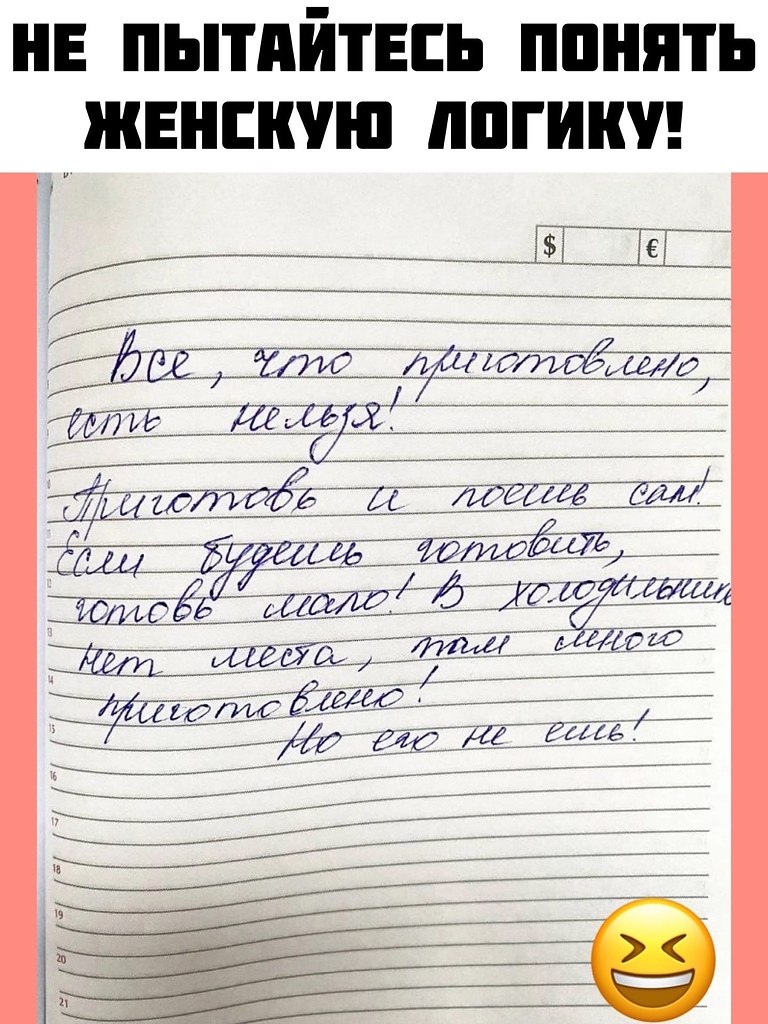 НЕ ПЫТАЙТЕСЬ ПОНЯТЬ
ЖЕНСКУЮ ЛОГИКУ!
$ €
Все, что приготовлено,
есть нельзя!
Приготовь и поешь сам!
Если будешь готовить,
готовь мало! В холодильник
нет места, там много
приготовлено!
Но его не ешь!
16
17
18
19
20
21